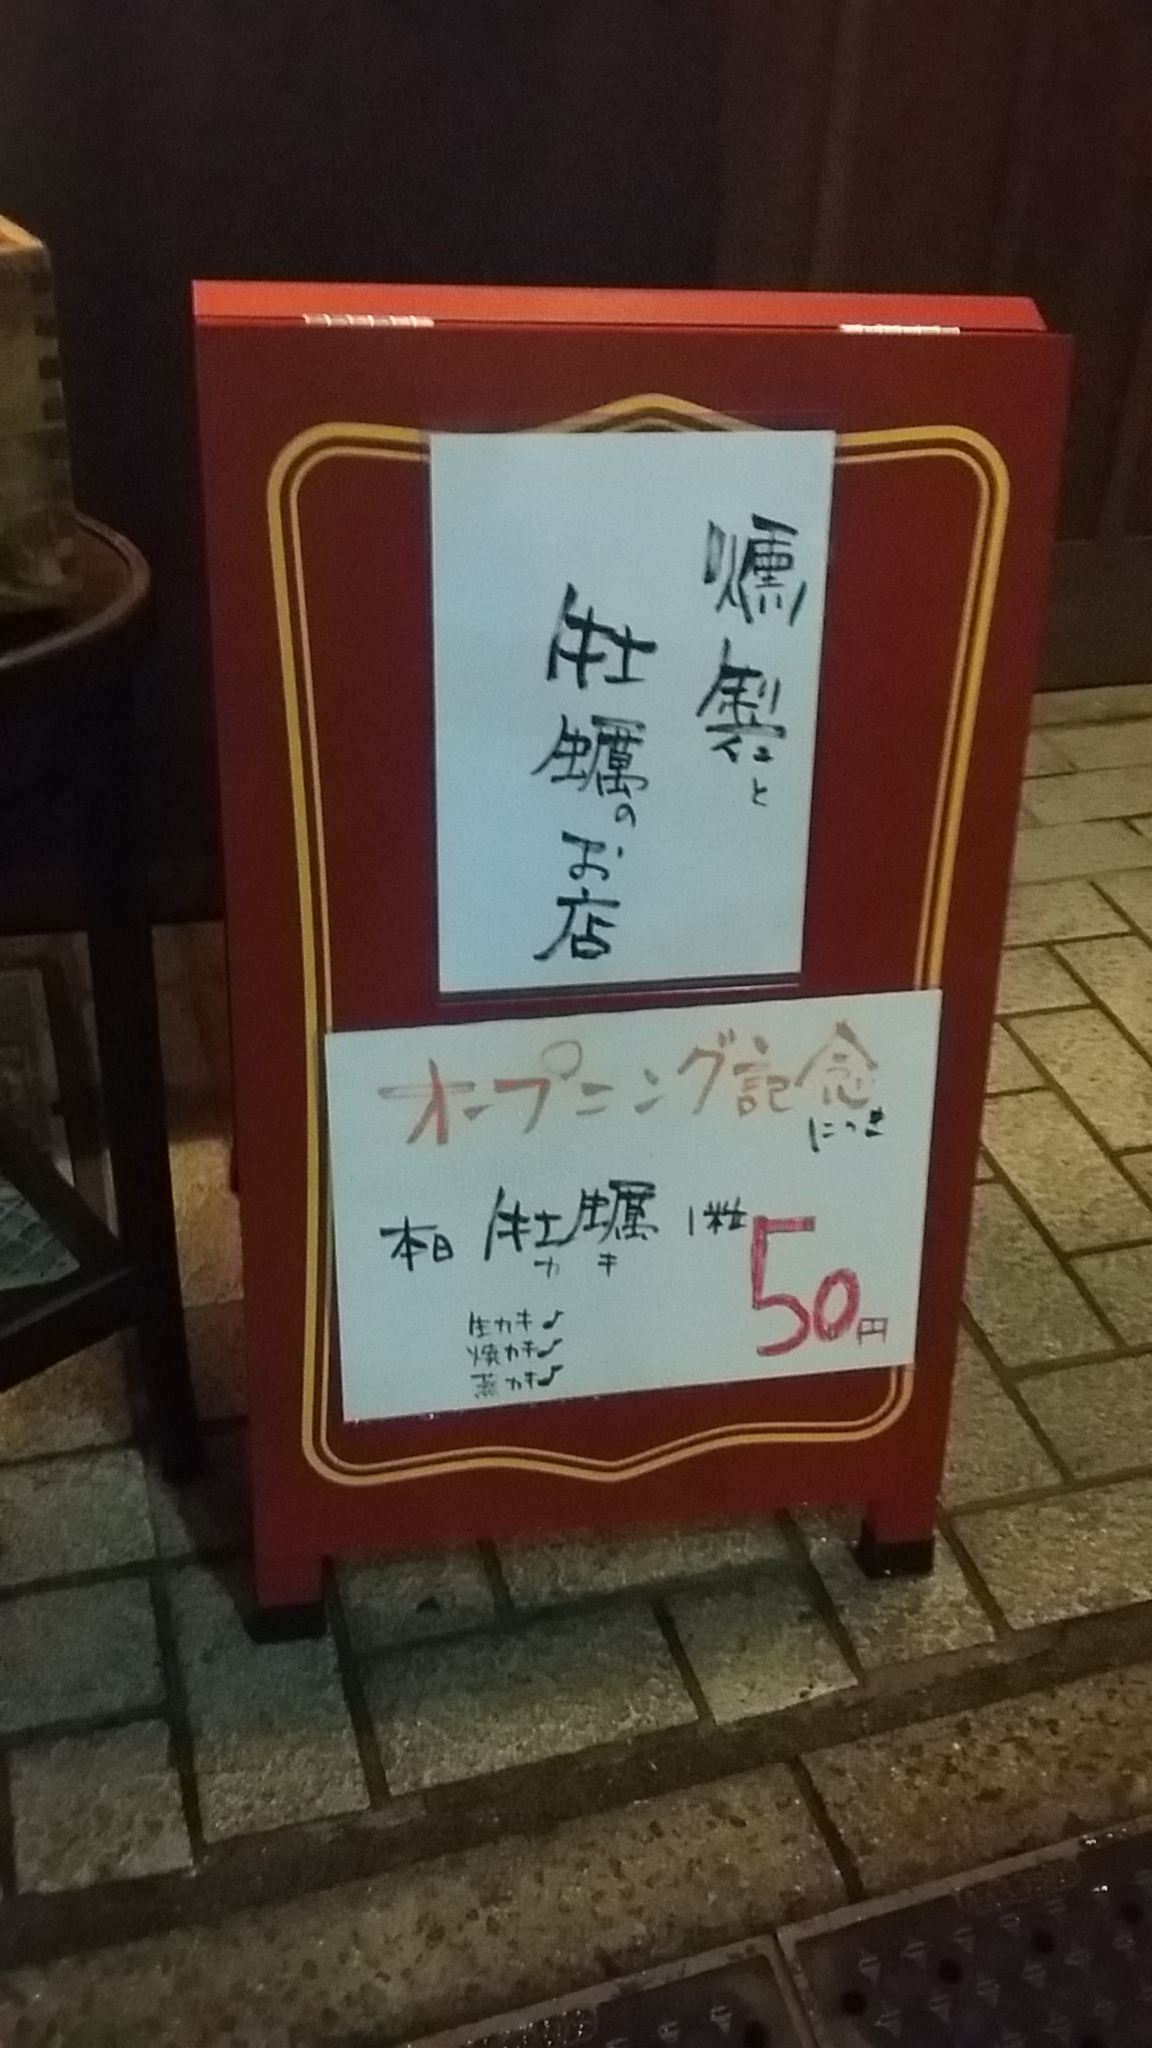 燻製と
牡蠣のお店
オープニング記念
につき
本日 牡蠣 1粒 50円
カキ
生カキ♪
焼カキ♪
蒸カキ♪